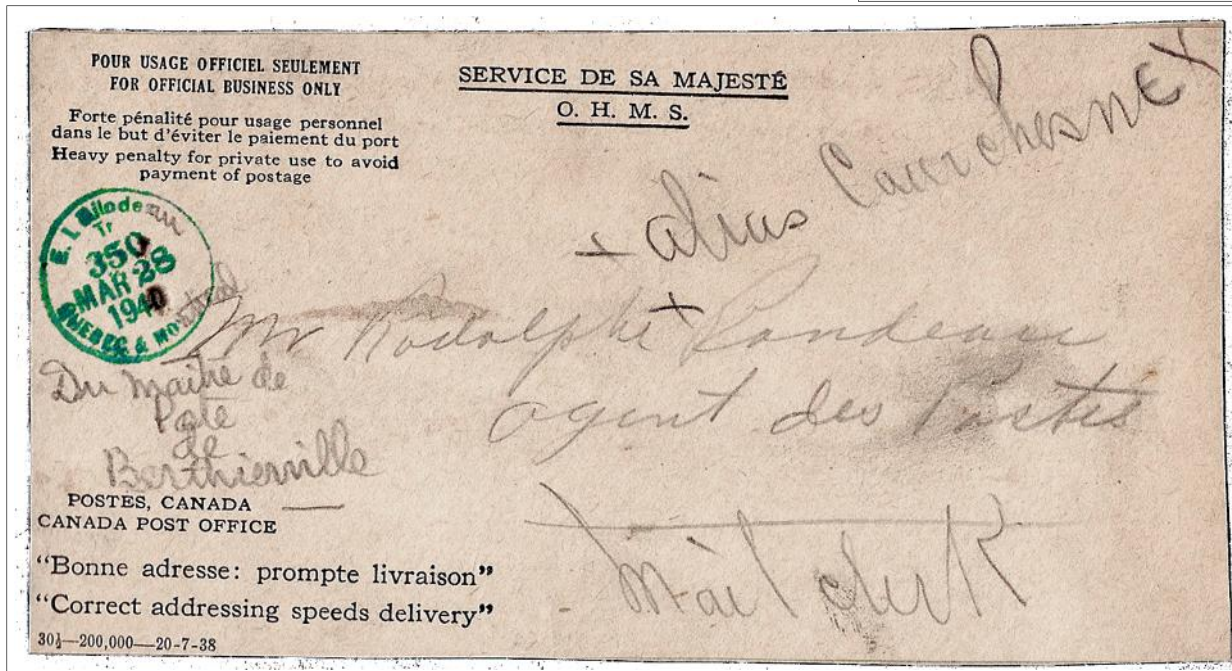 POUR USAGE OFFICIEL SEULEMENT
FOR OFFICIAL BUSINESS ONLY
Forte pénalité pour usage personnel
dans le but d'éviter le paiement du port
Heavy penalty for private use to avoid
payment of postage
SERVICE DE SA MAJESTÉ
O. H. M. S.
x alias Courchesne x
E. I. Bilodeau
Tr
350
MAR 28
1940
QUEBEC & Montreal
Mr Rodolphe x Rondeau
agent des Postes
Du Maitre de
Poste
de
Berthierville
POSTES, CANADA
CANADA POST OFFICE
"Bonne adresse: prompte livraison"
"Correct addressing speeds delivery"
Mail clerk
30½—200,000—20-7-38